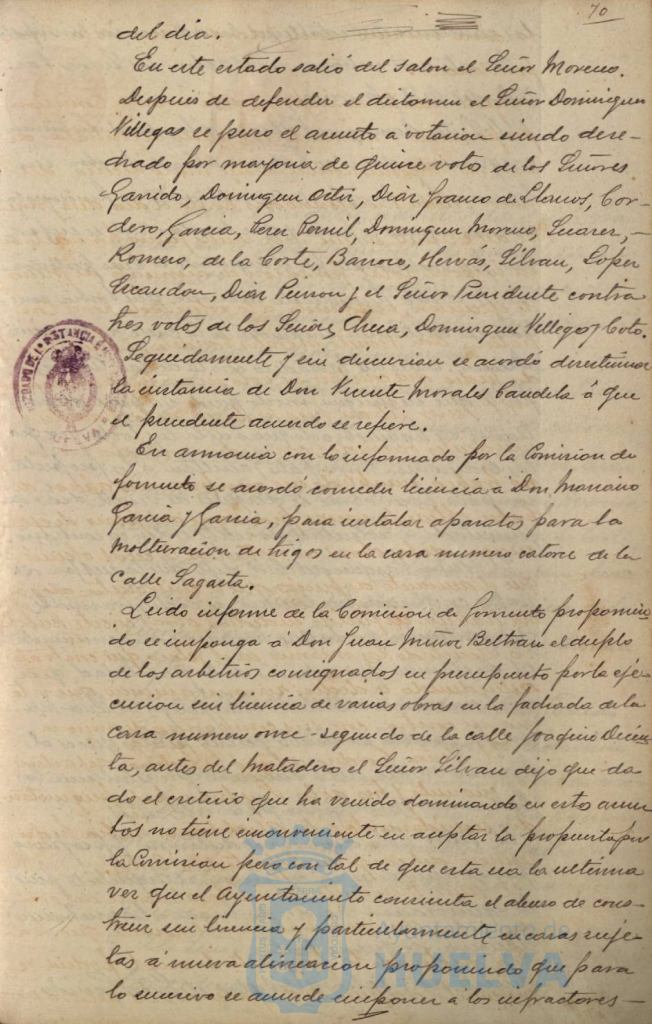 70
del dia.
En este estado salió del salon el Señor Moreno.
Despues de defender el dictamen el Señor Dominguez
Villegas se puso el asunto á votacion siendo dese-
chado por mayoria de quince votos de los Señores
Garrido, Dominguez Ortiz, Diaz Franco de Llanos, Cor-
dero, Garcia, Perez Pomil, Dominguez Moreno, Suarez, -
Romero, de la Corte, Barroso, Hervás, Silvan, Lopez
Escandon, Diaz Pinzon y el Señor Presidente contra
tres votos de los Señores Checa, Dominguez Villegas y Coto.
Seguidamente y sin discusion se acordó desestimar
la instancia de Don Vicente Morales Candela á que
el precedente acuerdo se refiere.
En armonia con lo informado por la Comision de
fomento se acordó conceder licencia á Don Mariano
Garcia y Garcia, para instalar aparatos para la
molturacion de trigos en la casa numero catorce de la
calle Sagasta.
Leido informe de la Comision de fomento proponien-
do se imponga á Don Juan Muñoz Beltran el duplo
de los arbitrios consignados en presupuesto por la eje-
cucion sin licencia de varias obras en la fachada de la
casa numero once-segundo de la calle Joaquin Dicen-
ta, antes del Matadero el Señor Silvan dijo que da-
do el criterio que ha venido dominando en estos asun-
tos no tiene inconveniente en aceptar la propuesta por
la Comision pero con tal de que esta sea la ultima
vez que el Ayuntamiento consienta el abuso de cons-
truir sin licencia y particularmente en casas suje-
tas á nueva alineacion proponiendo que para
lo sucesivo se acuerde imponer á los infractores-
HUELVA